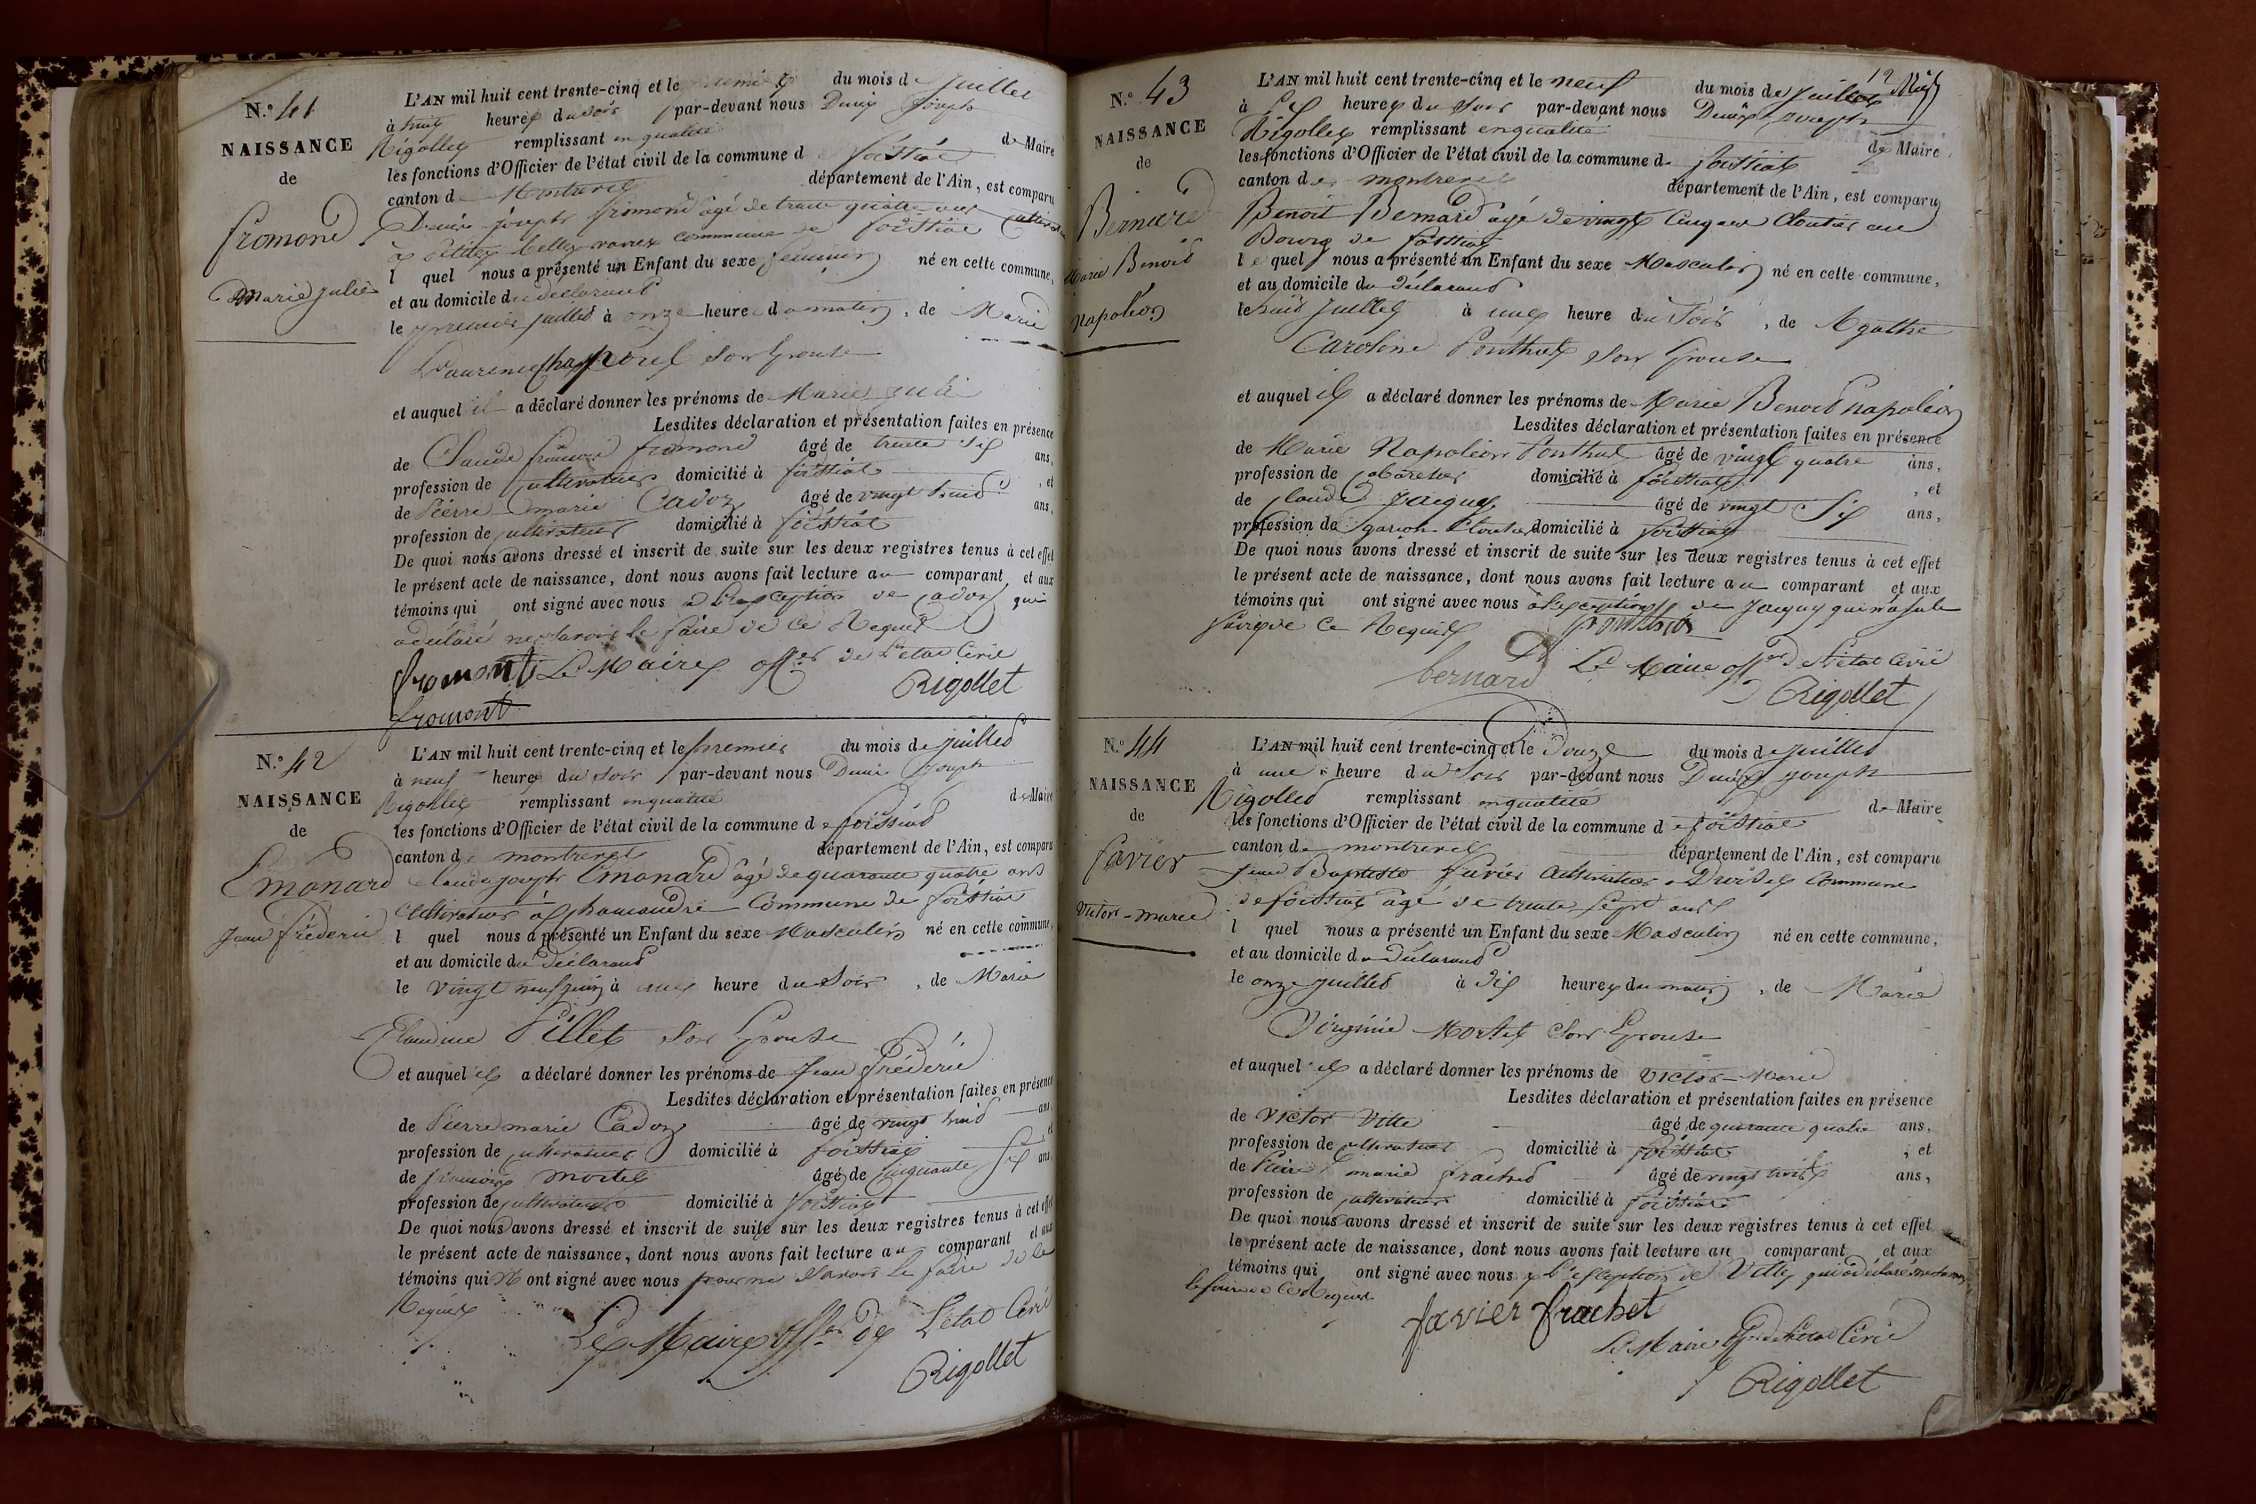 N.° 41
NAISSANCE
de
fromond
Marie Julie
L'AN mil huit cent trente-cinq et le premier du mois de Juillet
à huit heures du soir par-devant nous Denis Joseph
Rigollet remplissant en qualité de Maire
les fonctions d'Officier de l'état civil de la commune de foissiat
canton de Montrevel département de l'Ain, est comparu
Denis joseph fromond âgé de trente quatre ans
commune de foissiat
l quel nous a présenté un Enfant du sexe feminin né en cette commune,
et au domicile du déclarant
le premier juillet à onze heure du matin, de Marie
son Epouse
et auquel il a déclaré donner les prénoms de Marie Julie
Lesdites déclaration et présentation faites en présence
de Claude françois fromond âgé de trente six ans,
profession de cultivateur domicilié à foissiat, et
de Pierre marie Cadoz âgé de vingt huit ans,
profession de cultivateur domicilié à foissiat
De quoi nous avons dressé et inscrit de suite sur les deux registres tenus à cet effet
le présent acte de naissance, dont nous avons fait lecture au comparant et aux
témoins qui ont signé avec nous a L'exception de Cadoz qui
a déclaré ne savoir le faire de ce Requis
fromont Le Maire offer de L'état Civil
Rigollet
fromont
N.° 42
NAISSANCE
de
Emonard
Jean fréderic
L'AN mil huit cent trente-cinq et le premier du mois de juillet
à neuf heures du soir par-devant nous Denis Joseph
Rigollet remplissant en qualité de Maire
les fonctions d'Officier de l'état civil de la commune de foissiat
canton de montrevel département de l'Ain, est comparu
Claude joseph Emonard âgé de quarante quatre ans
Cultivateur à Commune de foissiat
l quel nous a présenté un Enfant du sexe Masculin né en cette commune,
et au domicile du déclarant
le vingt neuf juin à une heure du soir, de Marie
Claudine Pillet son Epouse
et auquel il a déclaré donner les prénoms de Jean fréderic
Lesdites déclaration et présentation faites en présence
de Pierre marie Cadoz âgé de vingt huit ans,
profession de cultivateur domicilié à foissiat et
de françois mortel âgé de cinquante six ans
profession de cultivateur domicilié à foissiat
De quoi nous avons dressé et inscrit de suite sur les deux registres tenus à cet effet
le présent acte de naissance, dont nous avons fait lecture au comparant et aux
témoins qui N ont signé avec nous pour ne savoir le faire de ce
Requis
Le Maire offer de L'état Civil
Rigollet
N.° 43
NAISSANCE
de
Bernard
Marie Benoit
Napoléon
L'AN mil huit cent trente-cinq et le neuf du mois de juillet
à six heures du soir par-devant nous Denis Joseph
Rigollet remplissant en qualité de Maire
les fonctions d'Officier de l'état civil de la commune de foissiat
canton de montrevel département de l'Ain, est comparu
Benoit Bernard âgé de vingt cinq ans Cloutier au
Bourg de foissiat
le quel nous a présenté un Enfant du sexe Masculin né en cette commune,
et au domicile du déclarant
le huit Juillet à une heure du soir, de Agathe
Caroline Ponthus son Epouse
et auquel il a déclaré donner les prénoms de Marie Benoit napoléon
Lesdites déclaration et présentation faites en présence
de Marie Napoléon Ponthus âgé de vingt quatre ans,
profession de cabaretier domicilié à foissiat, et
de Claude Jacquy âgé de vingt six ans,
profession de garçon Cloutier domicilié à foissiat
De quoi nous avons dressé et inscrit de suite sur les deux registres tenus à cet effet
le présent acte de naissance, dont nous avons fait lecture au comparant et aux
témoins qui ont signé avec nous à L'exception de Jacquy qui n'a sule
faire de Ce Requis
bernard Le Maire offer de l'état Civil
Rigollet
N.° 44
NAISSANCE
de
favier
Victor-marie
L'AN mil huit cent trente-cinq et le Douze du mois de juillet
à une heure du soir par-devant nous Denis joseph
Rigollet remplissant en qualité de Maire
les fonctions d'Officier de l'état civil de la commune de foissiat
canton de montrevel département de l'Ain, est comparu
Jean Baptiste favier cultivateur Commune
de foissiat âgé de trente sept ans
l quel nous a présenté un Enfant du sexe Masculin né en cette commune,
et au domicile du déclarant
le onze juillet à dix heures du matin, de Marie
Virginie Mortel son Epouse
et auquel il a déclaré donner les prénoms de victor-Marie
Lesdites déclaration et présentation faites en présence
de victor vitte âgé de quarante quatre ans,
profession de cultivateur domicilié à foissiat, et
de Pierre marie frachet âgé de vingt ans,
profession de cultivateur domicilié à foissiat
De quoi nous avons dressé et inscrit de suite sur les deux registres tenus à cet effet
le présent acte de naissance, dont nous avons fait lecture au comparant et aux
témoins qui ont signé avec nous à L'exception de Vitte qui a déclaré ne savoir
le faire de ce Requis
favier frachet
Le Maire offer de l'état Civil
Rigollet